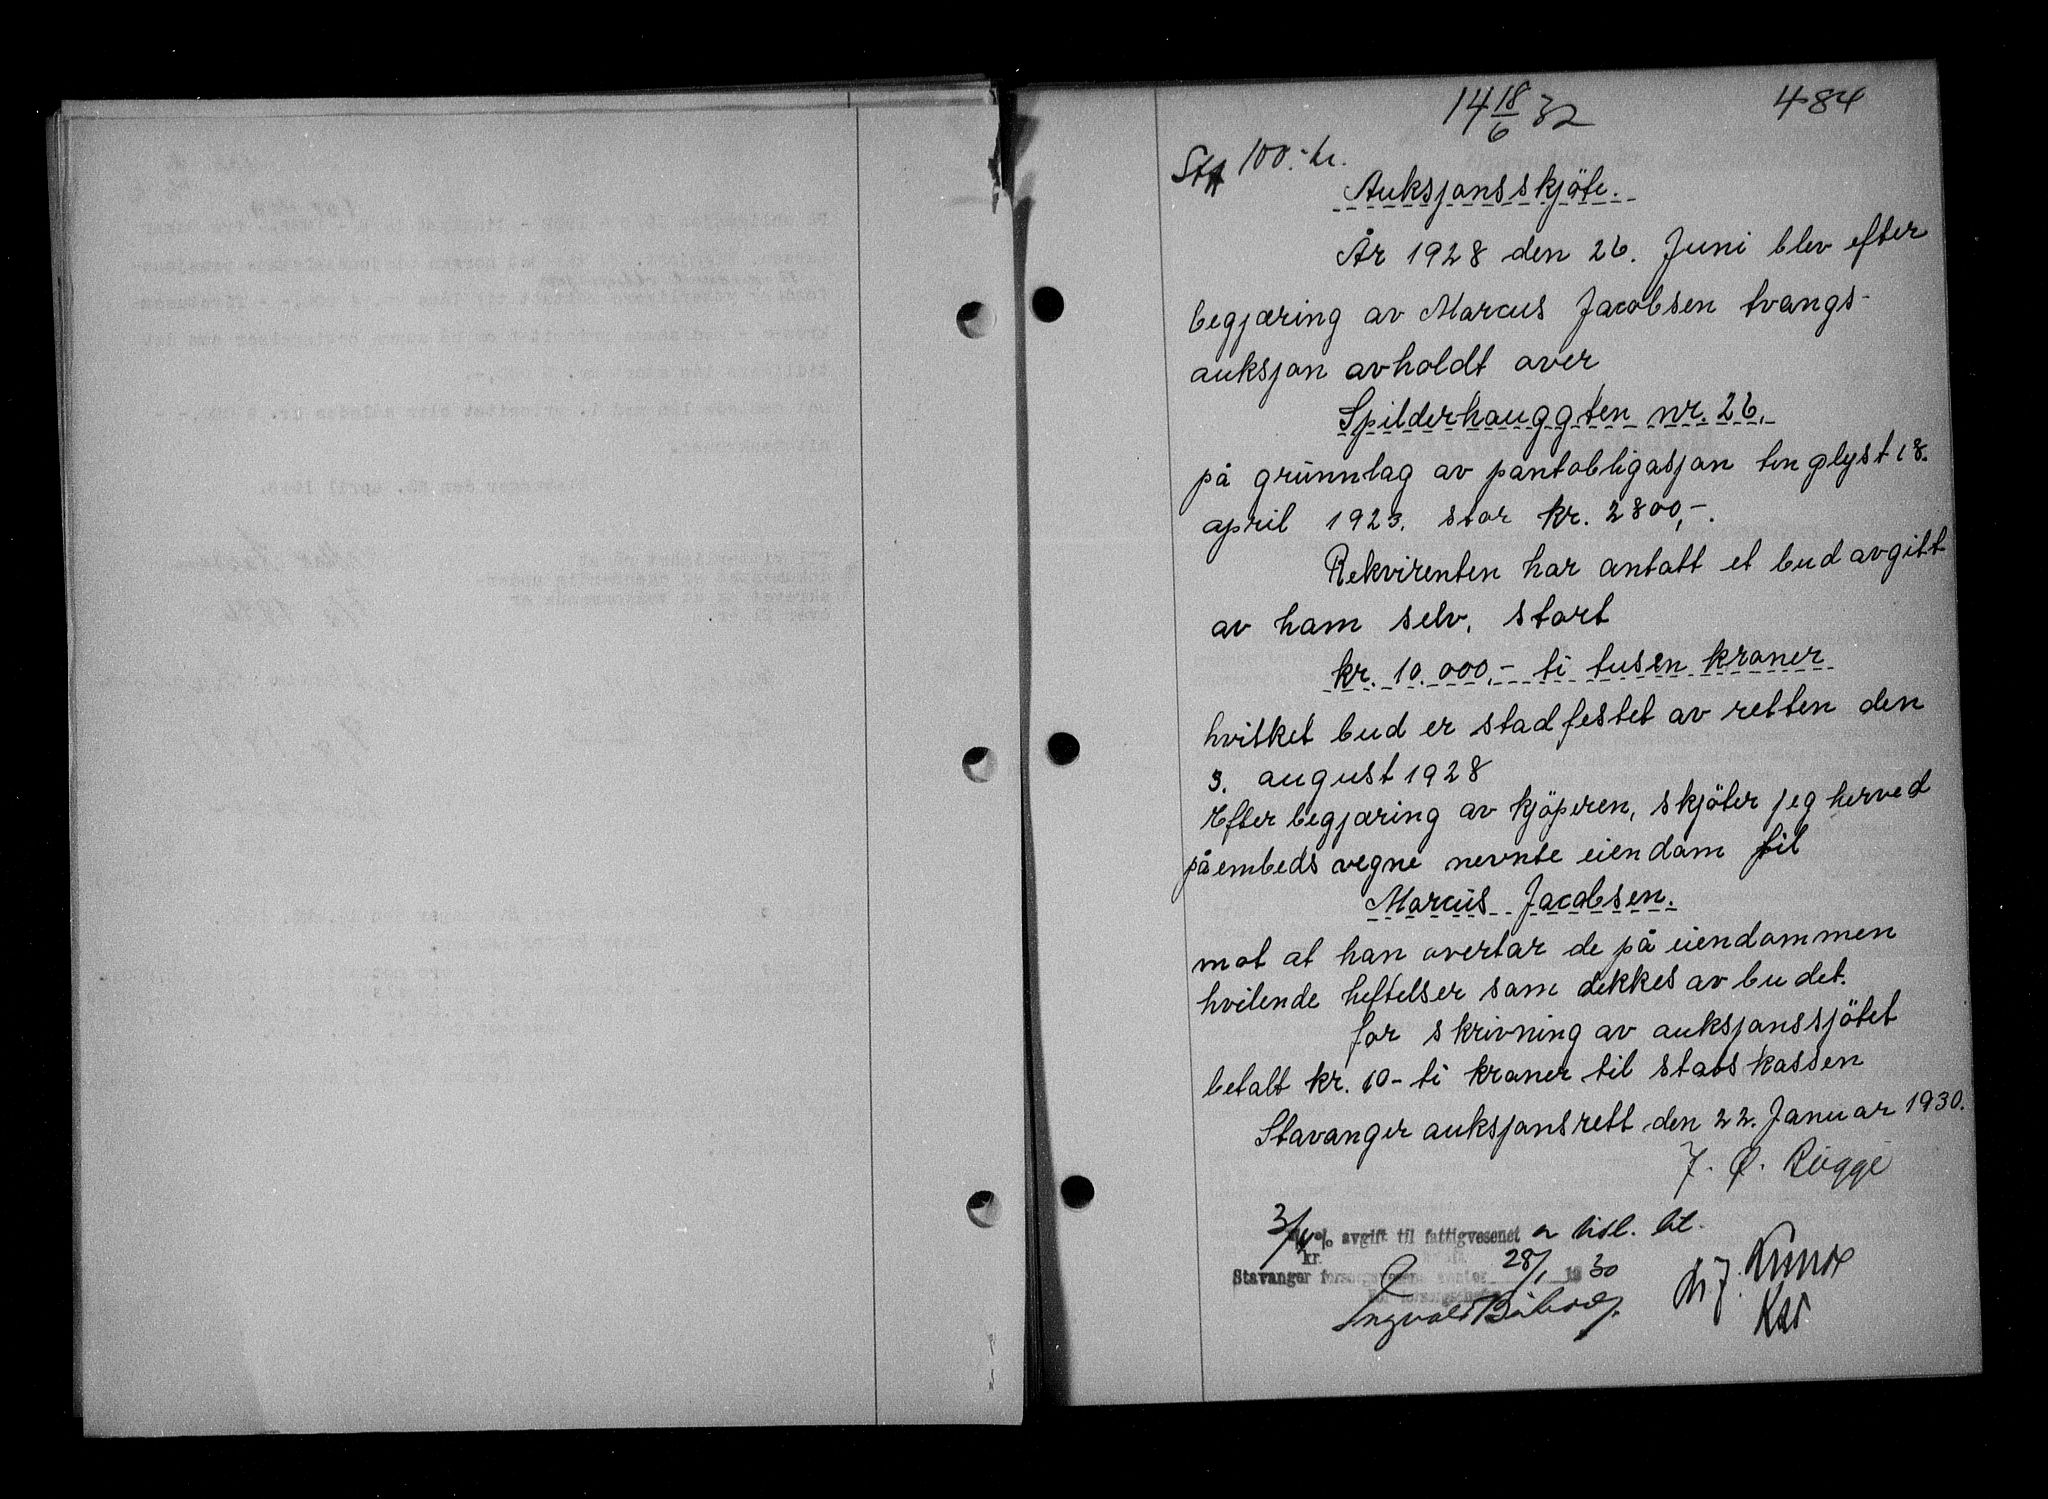 14 18/6 32
484
St 100.- kr.
Auksjonsskjöte.
År 1928 den 26. Juni blev efter
begjæring av Marcus Jacobsen tvangs-
auksjon avholdt over
Spilderhauggten nr. 26.
på grunnlag av pantobligasjon tinglyst 18.
april 1923. stor kr. 2800,-.
Rekvirenten har antatt et bud avgitt
av ham selv, stort
kr. 10.000,- ti tusen kroner
hvilket bud er stadfestet av retten den
3. august 1928
Efter begjæring av kjöperen, skjöter jeg herved
på embeds vegne nevnte eiendom til
Marcus Jacobsen.
mot at han overtar de på eiendommen
hvilende heftelser som dekkes av budet.
for skrivning av auksjonssjötet
betalt kr. 10- ti kroner til statskassen
Stavanger auksjonsrett den 22. Januar 1930.
J. Ø. Rügge
% avgift til fattigvesenet
kr.
Stavanger forsorgsvesens kontor 28/1 1930
Ingvald